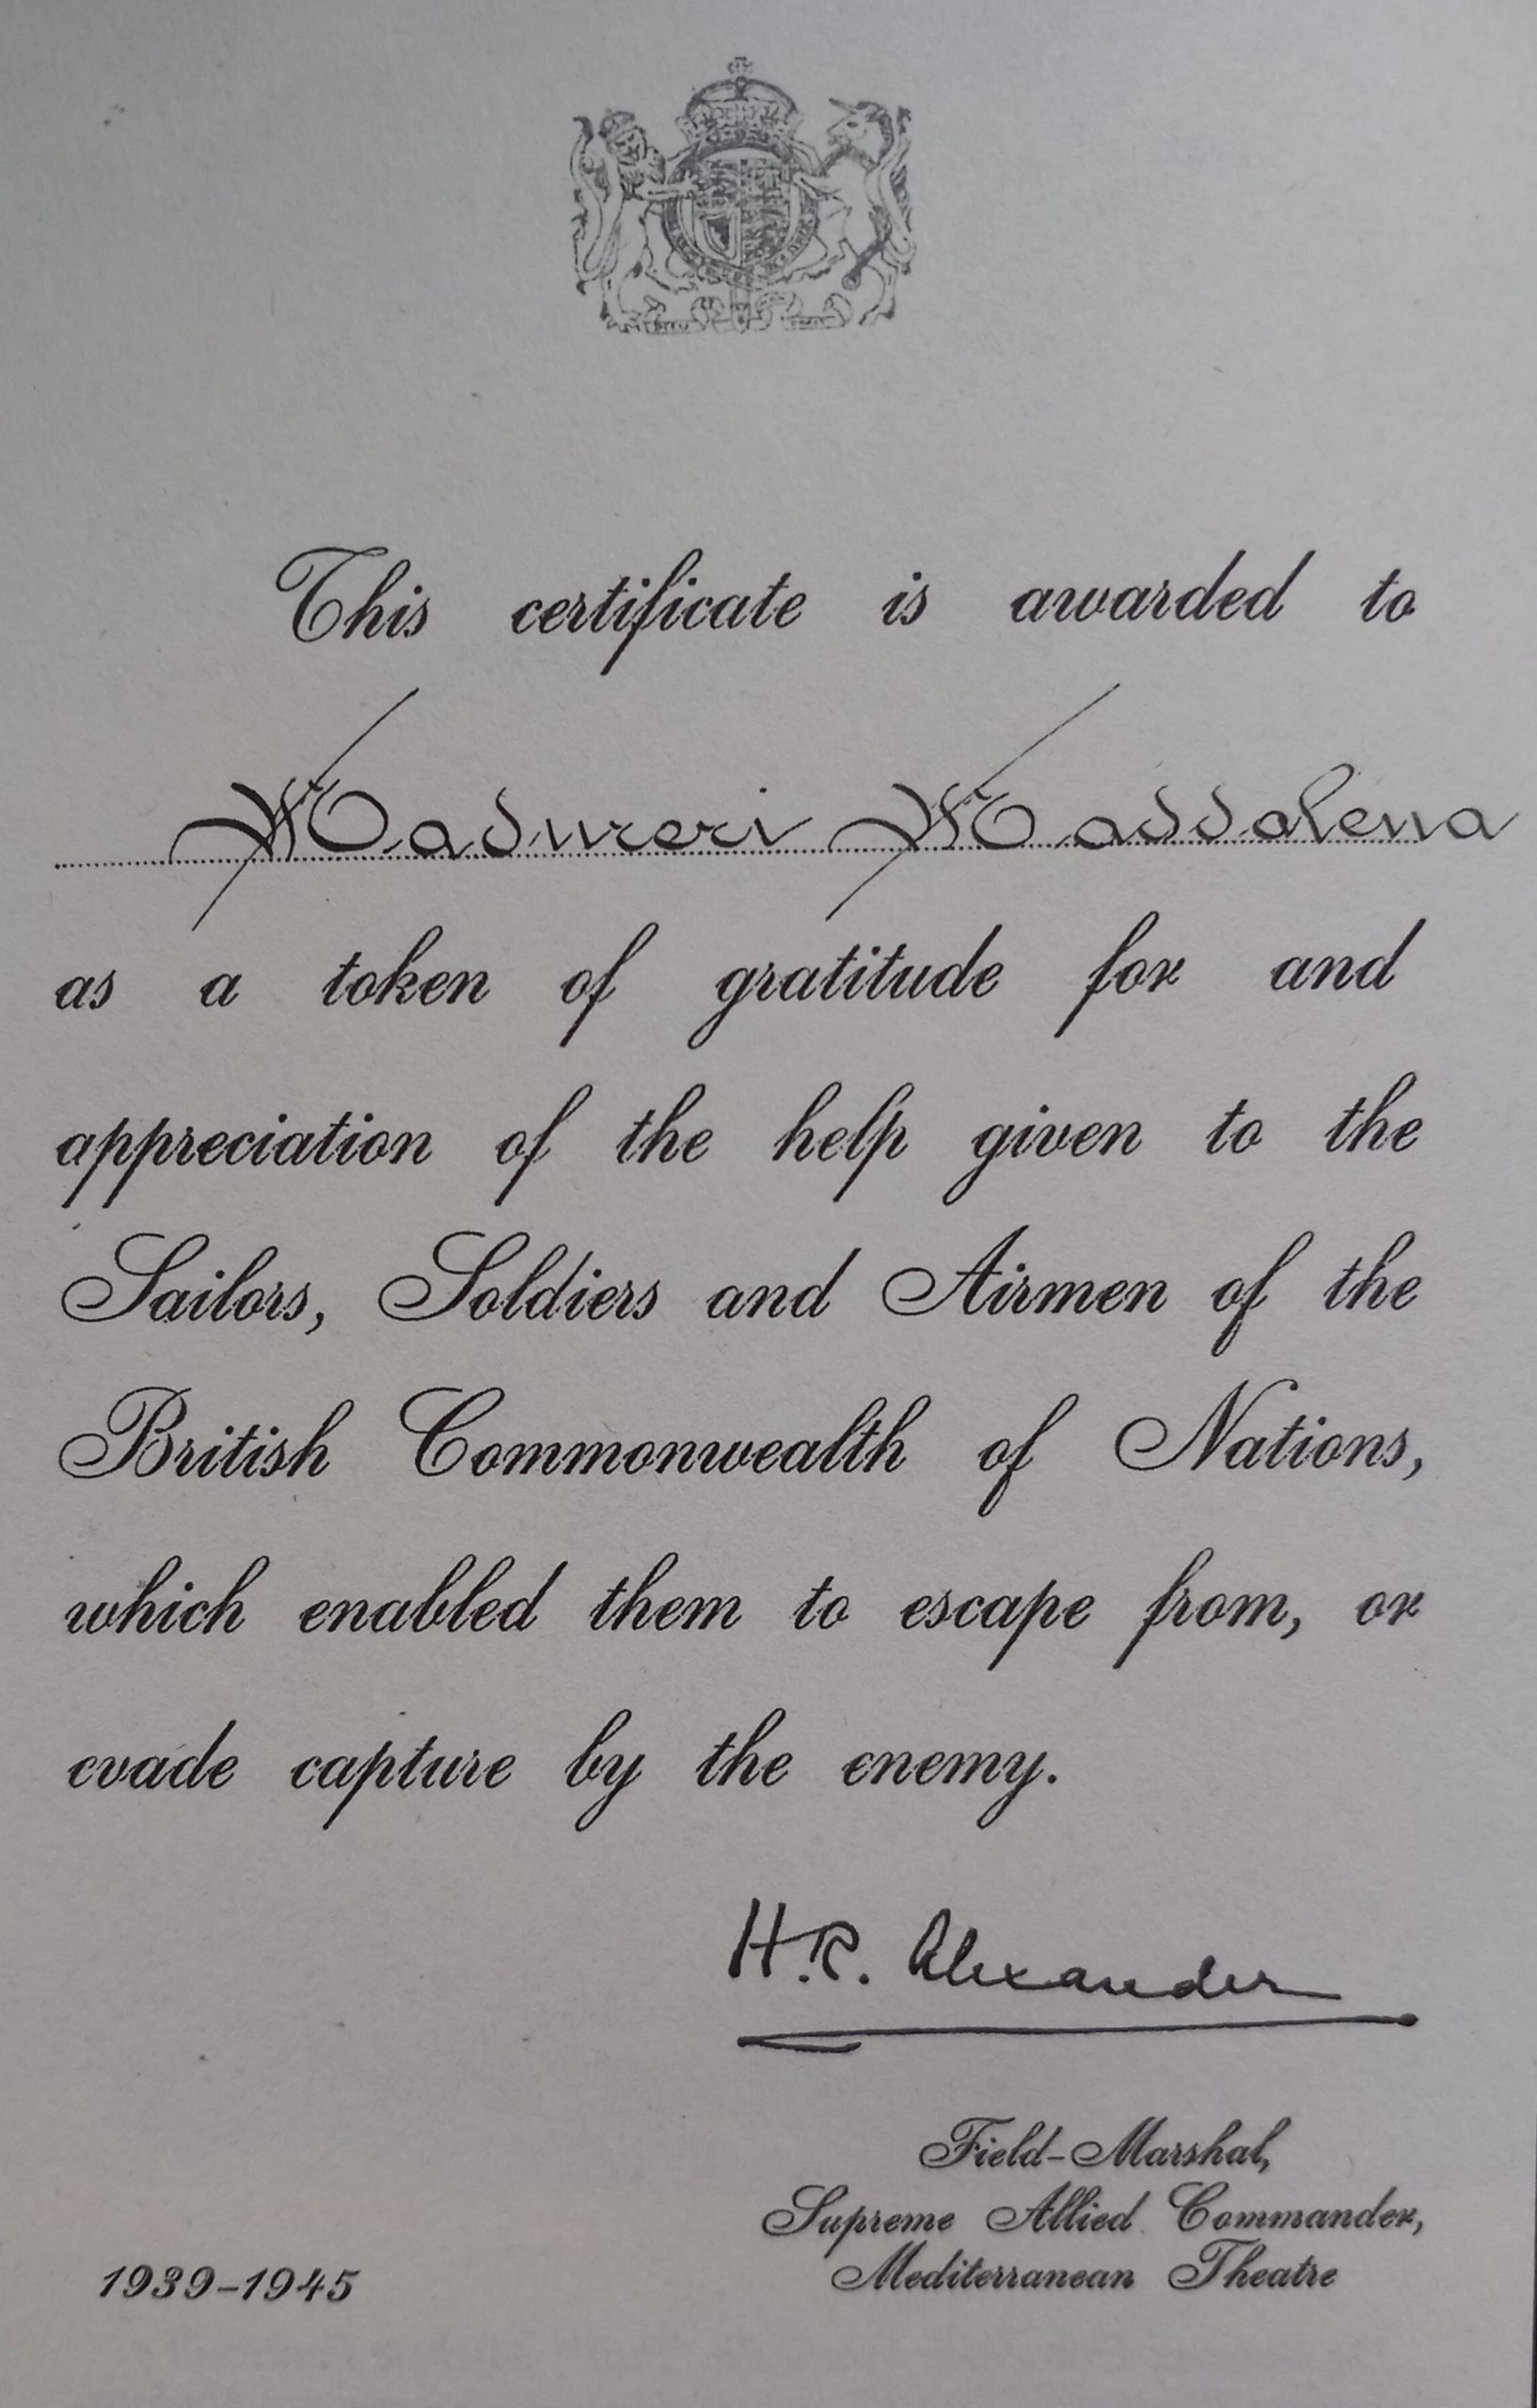 This certificate is awarded to
Madureri Maddalena
as a token of gratitude for and
appreciation of the help given to the
Sailors, Soldiers and Airmen of the
British Commonwealth of Nations,
which enabled them to escape from, or
evade capture by the enemy.
H.R. Alexander
Field-Marshal,
Supreme Allied Commander,
Mediterranean Theatre
1939-1945